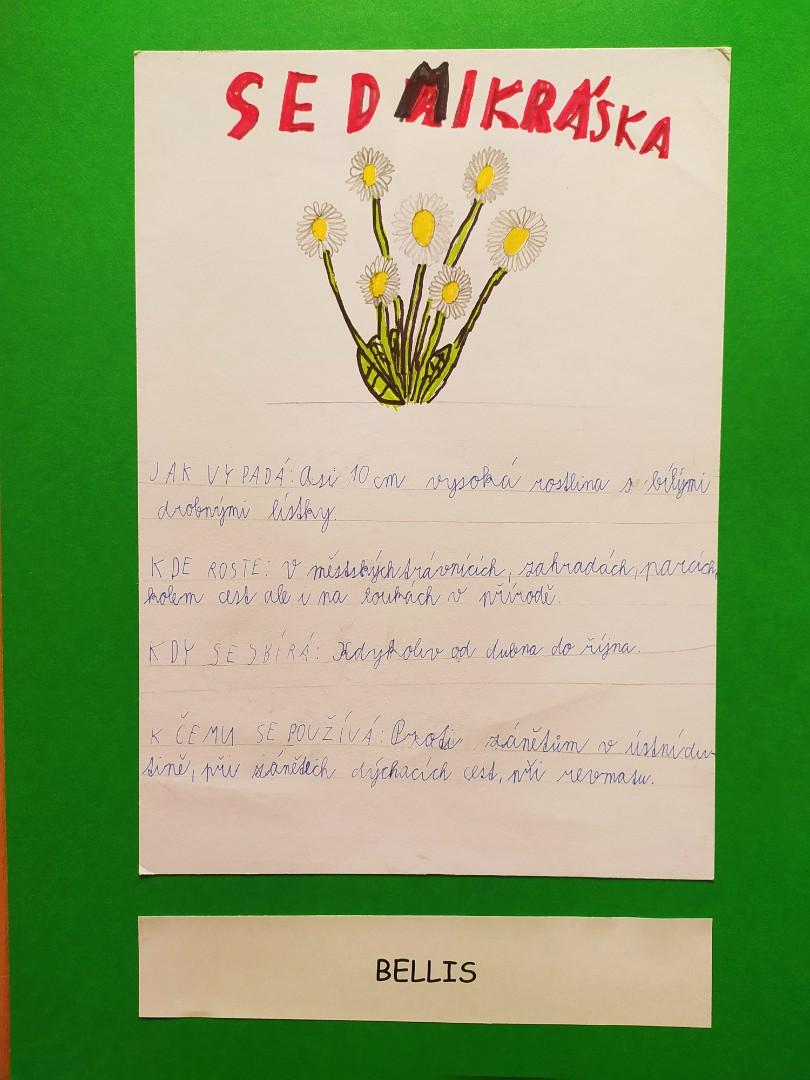 SEDMIKRÁSKA
JAK VYPADÁ: Asi 10 cm vysoká rostlina s bílými
drobnými lístky.
KDE ROSTE: V městských trávnících, zahradách, parcích,
kolem cest ale i na loukách v přírodě.
KDY SE SBÍRÁ: Kdykoliv od dubna do října.
K ČEMU SE POUŽÍVÁ: Proti zánětům v ústní du-
tině, při zánětech dýchacích cest, při revmatu.
BELLIS